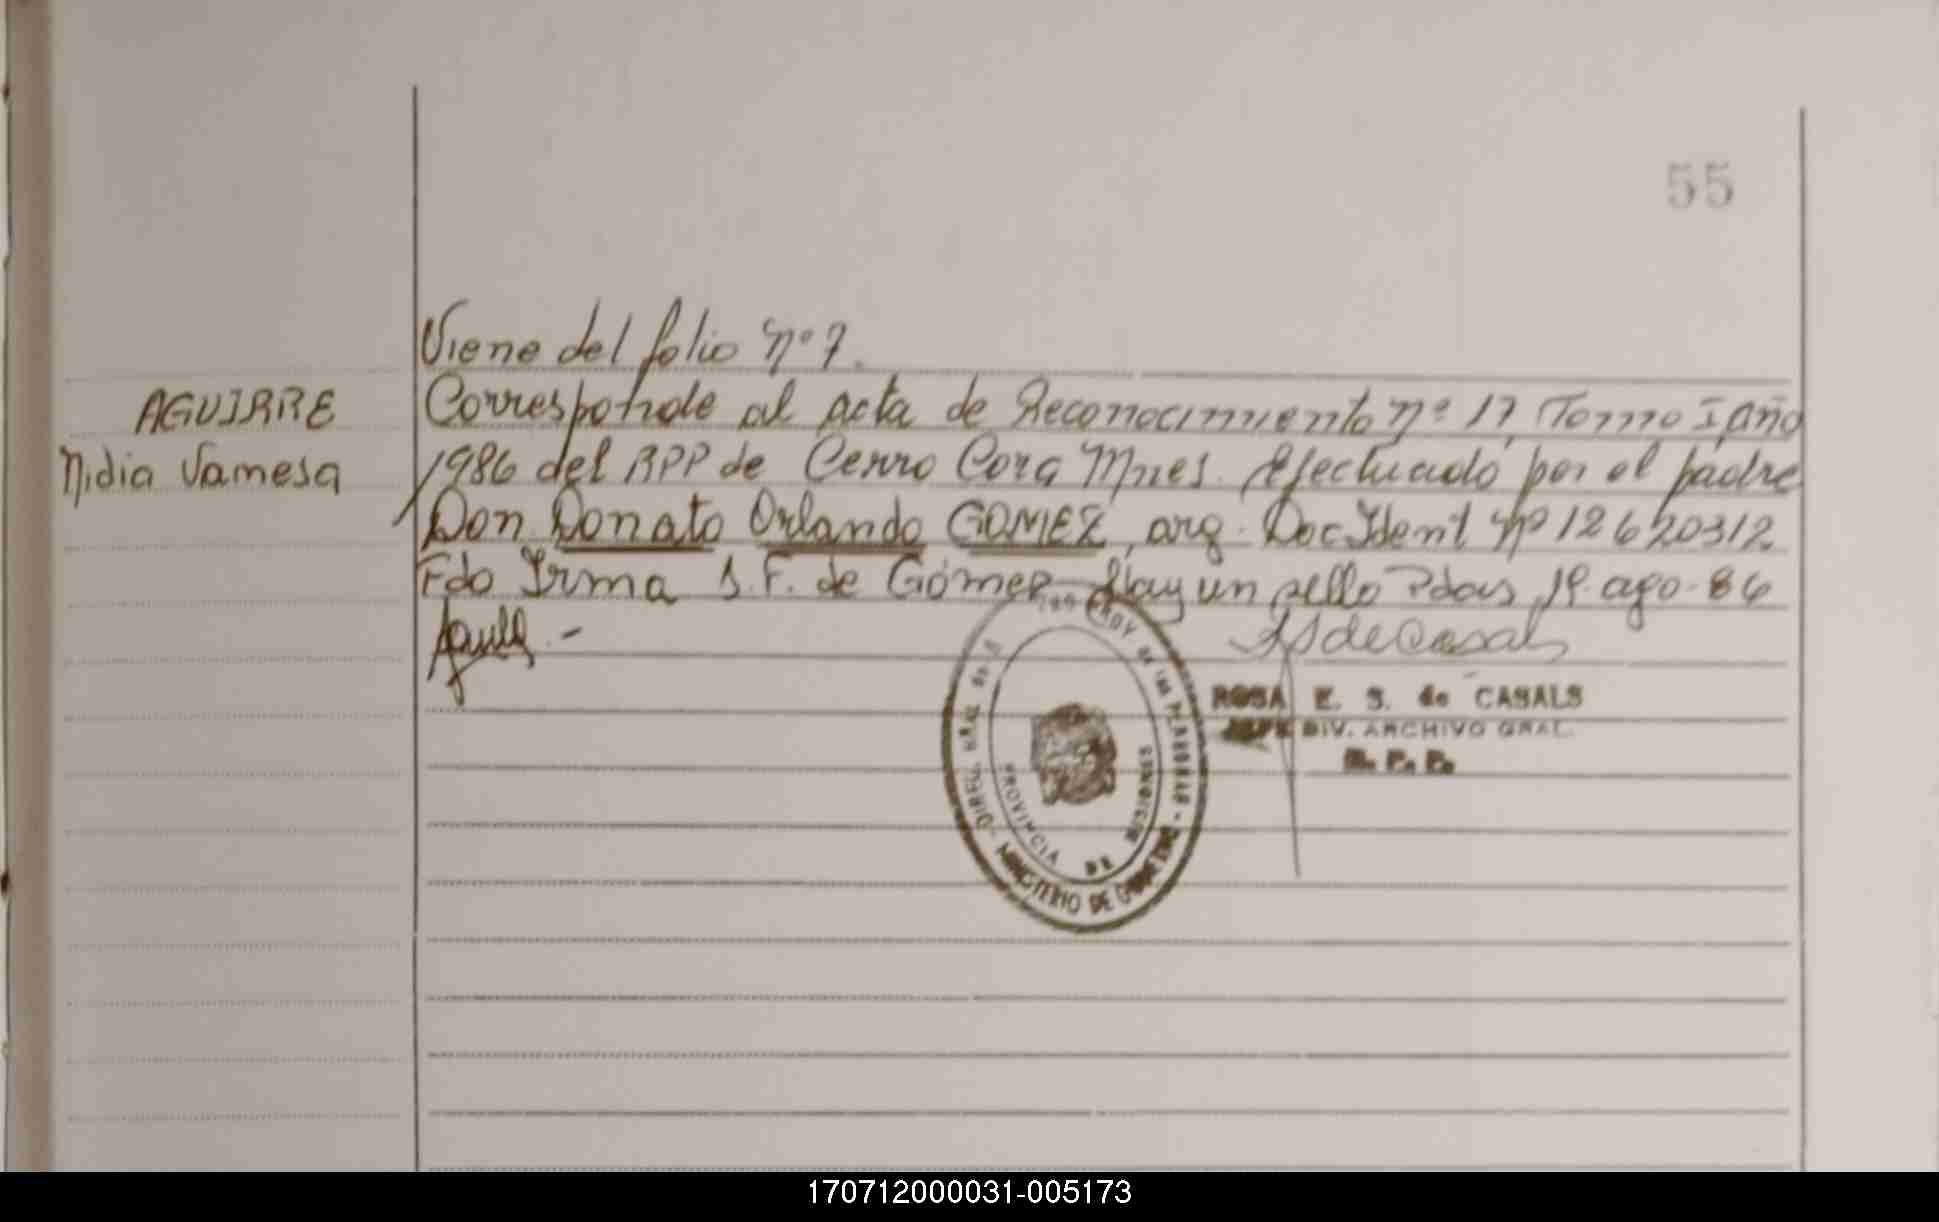 55
Viene del folio nº 7.
AGUIRRE
Nidia Vamesa
Corresponde al acta de Reconocimiento nº 17, Tomo I, año
1986 del RPP de Cerro Cora Mnes. Efectuado por el padre
Don Donato Orlando GOMEZ, arg. Doc Ident Nº 12620312
Fdo Irma S. F. de Gómez Hay un sello Pdas, 19. ago. 86
ROSA E. S. de CASALS
JEFE DIV. ARCHIVO GRAL.
R. P. P.
MINISTERIO DE GOBIERNO
PROVINCIA DE MISIONES
170712000031-005173